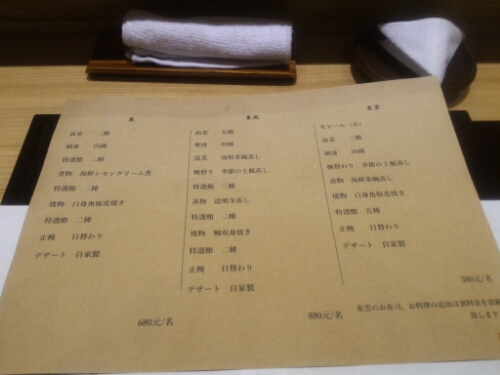 前菜 二種
刺身 四種
特選鮨 二種
煮物 海鮮レモンクリーム煮
特選鮨 二種
焼物 白身魚桜花焼き
特選鮨 二種
止椀 日替わり
デザート 自家製
680元/名
前菜 五種
刺身 四種
温菜 海鮮茶碗蒸し
椀替り 季節の土瓶蒸し
特選鮨 三種
蒸物 道明寺蒸し
特選鮨 二種
焼物
特選鮨 二種
止椀 日替わり
デザート 自家製
880元/名
生ビール(小)
前菜
刺身 四種
椀替わり 季節の土瓶蒸し
蒸物 海鮮茶碗蒸し
焼物 白身魚桜花焼き
特選鮨 五種
止椀 日替わり
デザート 自家製
580元/名
お料理の追加は別料金を頂戴
致します